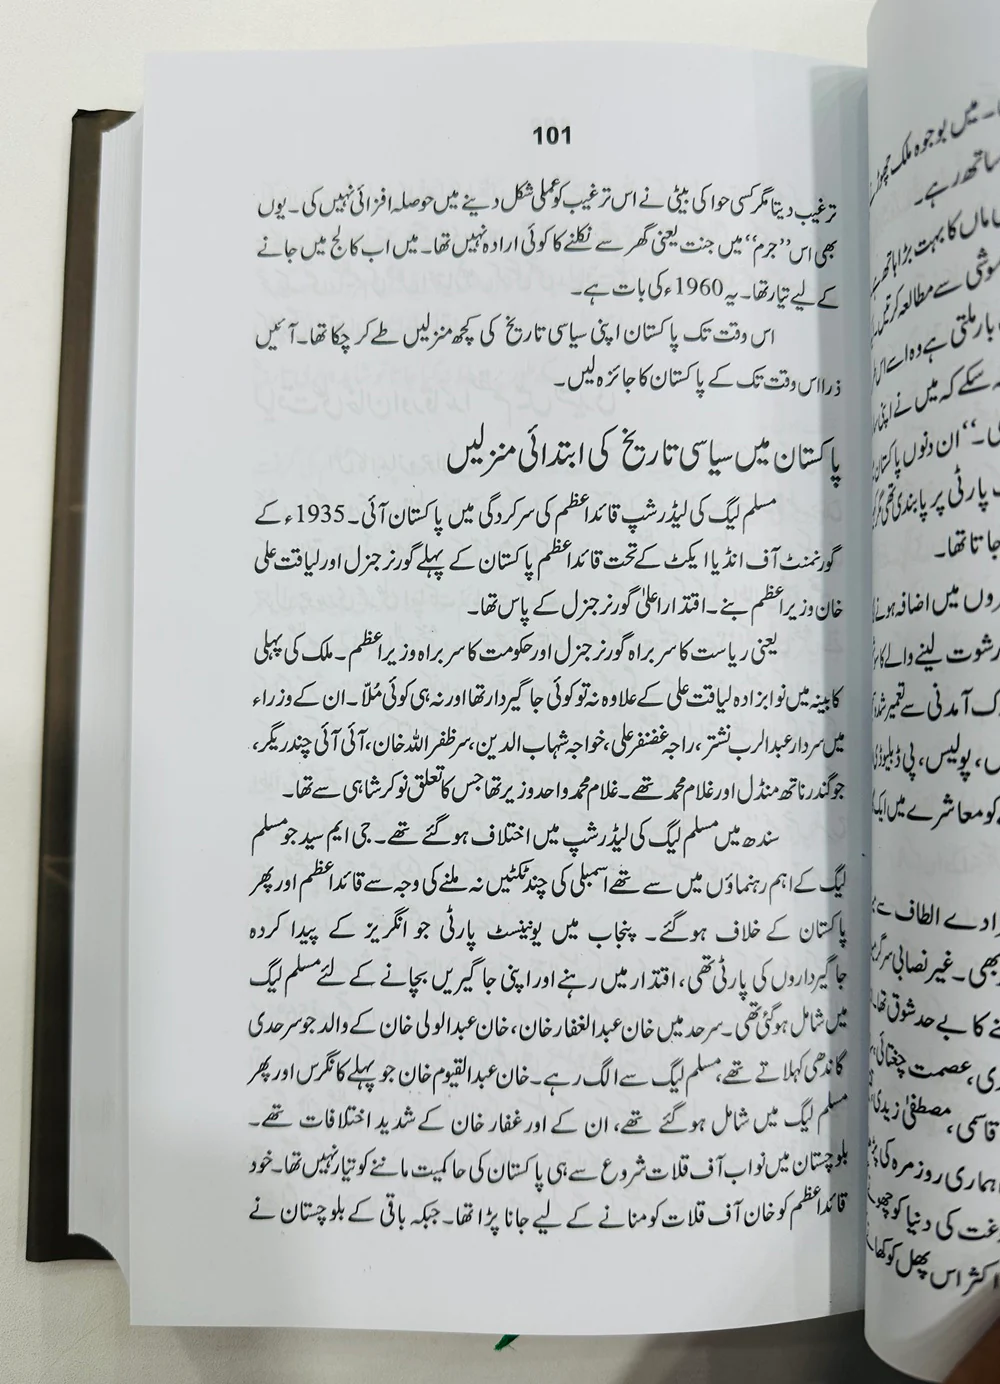 101
ترغیب دیتا مگر کسی حوا کی بیٹی نے اس ترغیب کو عملی شکل دینے میں حوصلہ افزائی نہیں کی۔ یوں
بھی اس ’’جرم‘‘ میں جنت یعنی گھر سے نکلنے کا کوئی ارادہ نہیں تھا۔ میں اب کالج میں جانے
کے لیے تیار تھا۔ یہ 1960ء کی بات ہے۔
اس وقت تک پاکستان اپنی سیاسی تاریخ کی کچھ منزلیں طے کر چکا تھا۔ آئیں
ذرا اس وقت تک کے پاکستان کا جائزہ لیں۔
پاکستان میں سیاسی تاریخ کی ابتدائی منزلیں
مسلم لیگ کی لیڈر شپ قائداعظم کی سرکردگی میں پاکستان آئی۔ 1935ء کے
گورنمنٹ آف انڈیا ایکٹ کے تحت قائداعظم پاکستان کے پہلے گورنر جنرل اور لیاقت علی
خان وزیراعظم بنے۔ اقتدار اعلیٰ گورنر جنرل کے پاس تھا۔
یعنی ریاست کا سربراہ گورنر جنرل اور حکومت کا سربراہ وزیراعظم۔ ملک کی پہلی
کابینہ میں نوابزادہ لیاقت علی کے علاوہ نہ تو کوئی جاگیردار تھا اور نہ ہی کوئی مُلّا۔ ان کے وزراء
میں سردار عبدالرب نشتر، راجہ غضنفر علی، خواجہ شہاب الدین، سر ظفر اللہ خان، آئی آئی چندریگر،
جوگندر ناتھ منڈل اور غلام محمد تھے۔ غلام محمد واحد وزیر تھا جس کا تعلق نوکر شاہی سے تھا۔
سندھ میں مسلم لیگ کی لیڈر شپ میں اختلاف ہو گئے تھے۔ جی ایم سید جو مسلم
لیگ کے اہم رہنماؤں میں سے تھے اسمبلی کی چند ٹکٹیں نہ ملنے کی وجہ سے قائداعظم اور پھر
پاکستان کے خلاف ہو گئے۔ پنجاب میں یونینسٹ پارٹی جو انگریز کے پیدا کردہ
جاگیرداروں کی پارٹی تھی، اقتدار میں رہنے اور اپنی جاگیریں بچانے کے لئے مسلم لیگ
میں شامل ہو گئی تھی۔ سرحد میں خان عبدالغفار خان، خان عبدالولی خان کے والد جو سرحدی
گاندھی کہلاتے تھے، مسلم لیگ سے الگ رہے۔ خان عبدالقیوم خان جو پہلے کانگرس اور پھر
مسلم لیگ میں شامل ہو گئے تھے، ان کے اور غفار خان کے شدید اختلافات تھے۔
بلوچستان میں نواب آف قلات شروع سے ہی پاکستان کی حاکمیت ماننے کو تیار نہیں تھا۔ خود
قائداعظم کو خان آف قلات کو منانے کے لیے جانا پڑا تھا۔ جبکہ باقی کے بلوچستان نے
میں بوجوہ ملک
ساتھ رہے۔
ماں کا بہت بڑا ہاتھ
سے مطالعہ کرتیں
بار ملتی ہے وہ اسے اس
سکے کہ میں نے اپنا
۔‘‘ ان دنوں پاکستان
پارٹی پر پابندی تھی
جاتا تھا۔
میں اضافہ ہونے
رشوت لینے والے کا
آمدنی سے تعمیر شدہ
، پولیس، پی ڈبلیو ڈی
کو معاشرے میں ایک
الطاف سے
بھی۔ غیر نصابی
کا بے حد شوق تھا۔
عصمت چغتائی،
قاسمی، مصطفیٰ زیدی
ہماری روزمرہ کی
کی دنیا کو
اکثر اس پھل کو